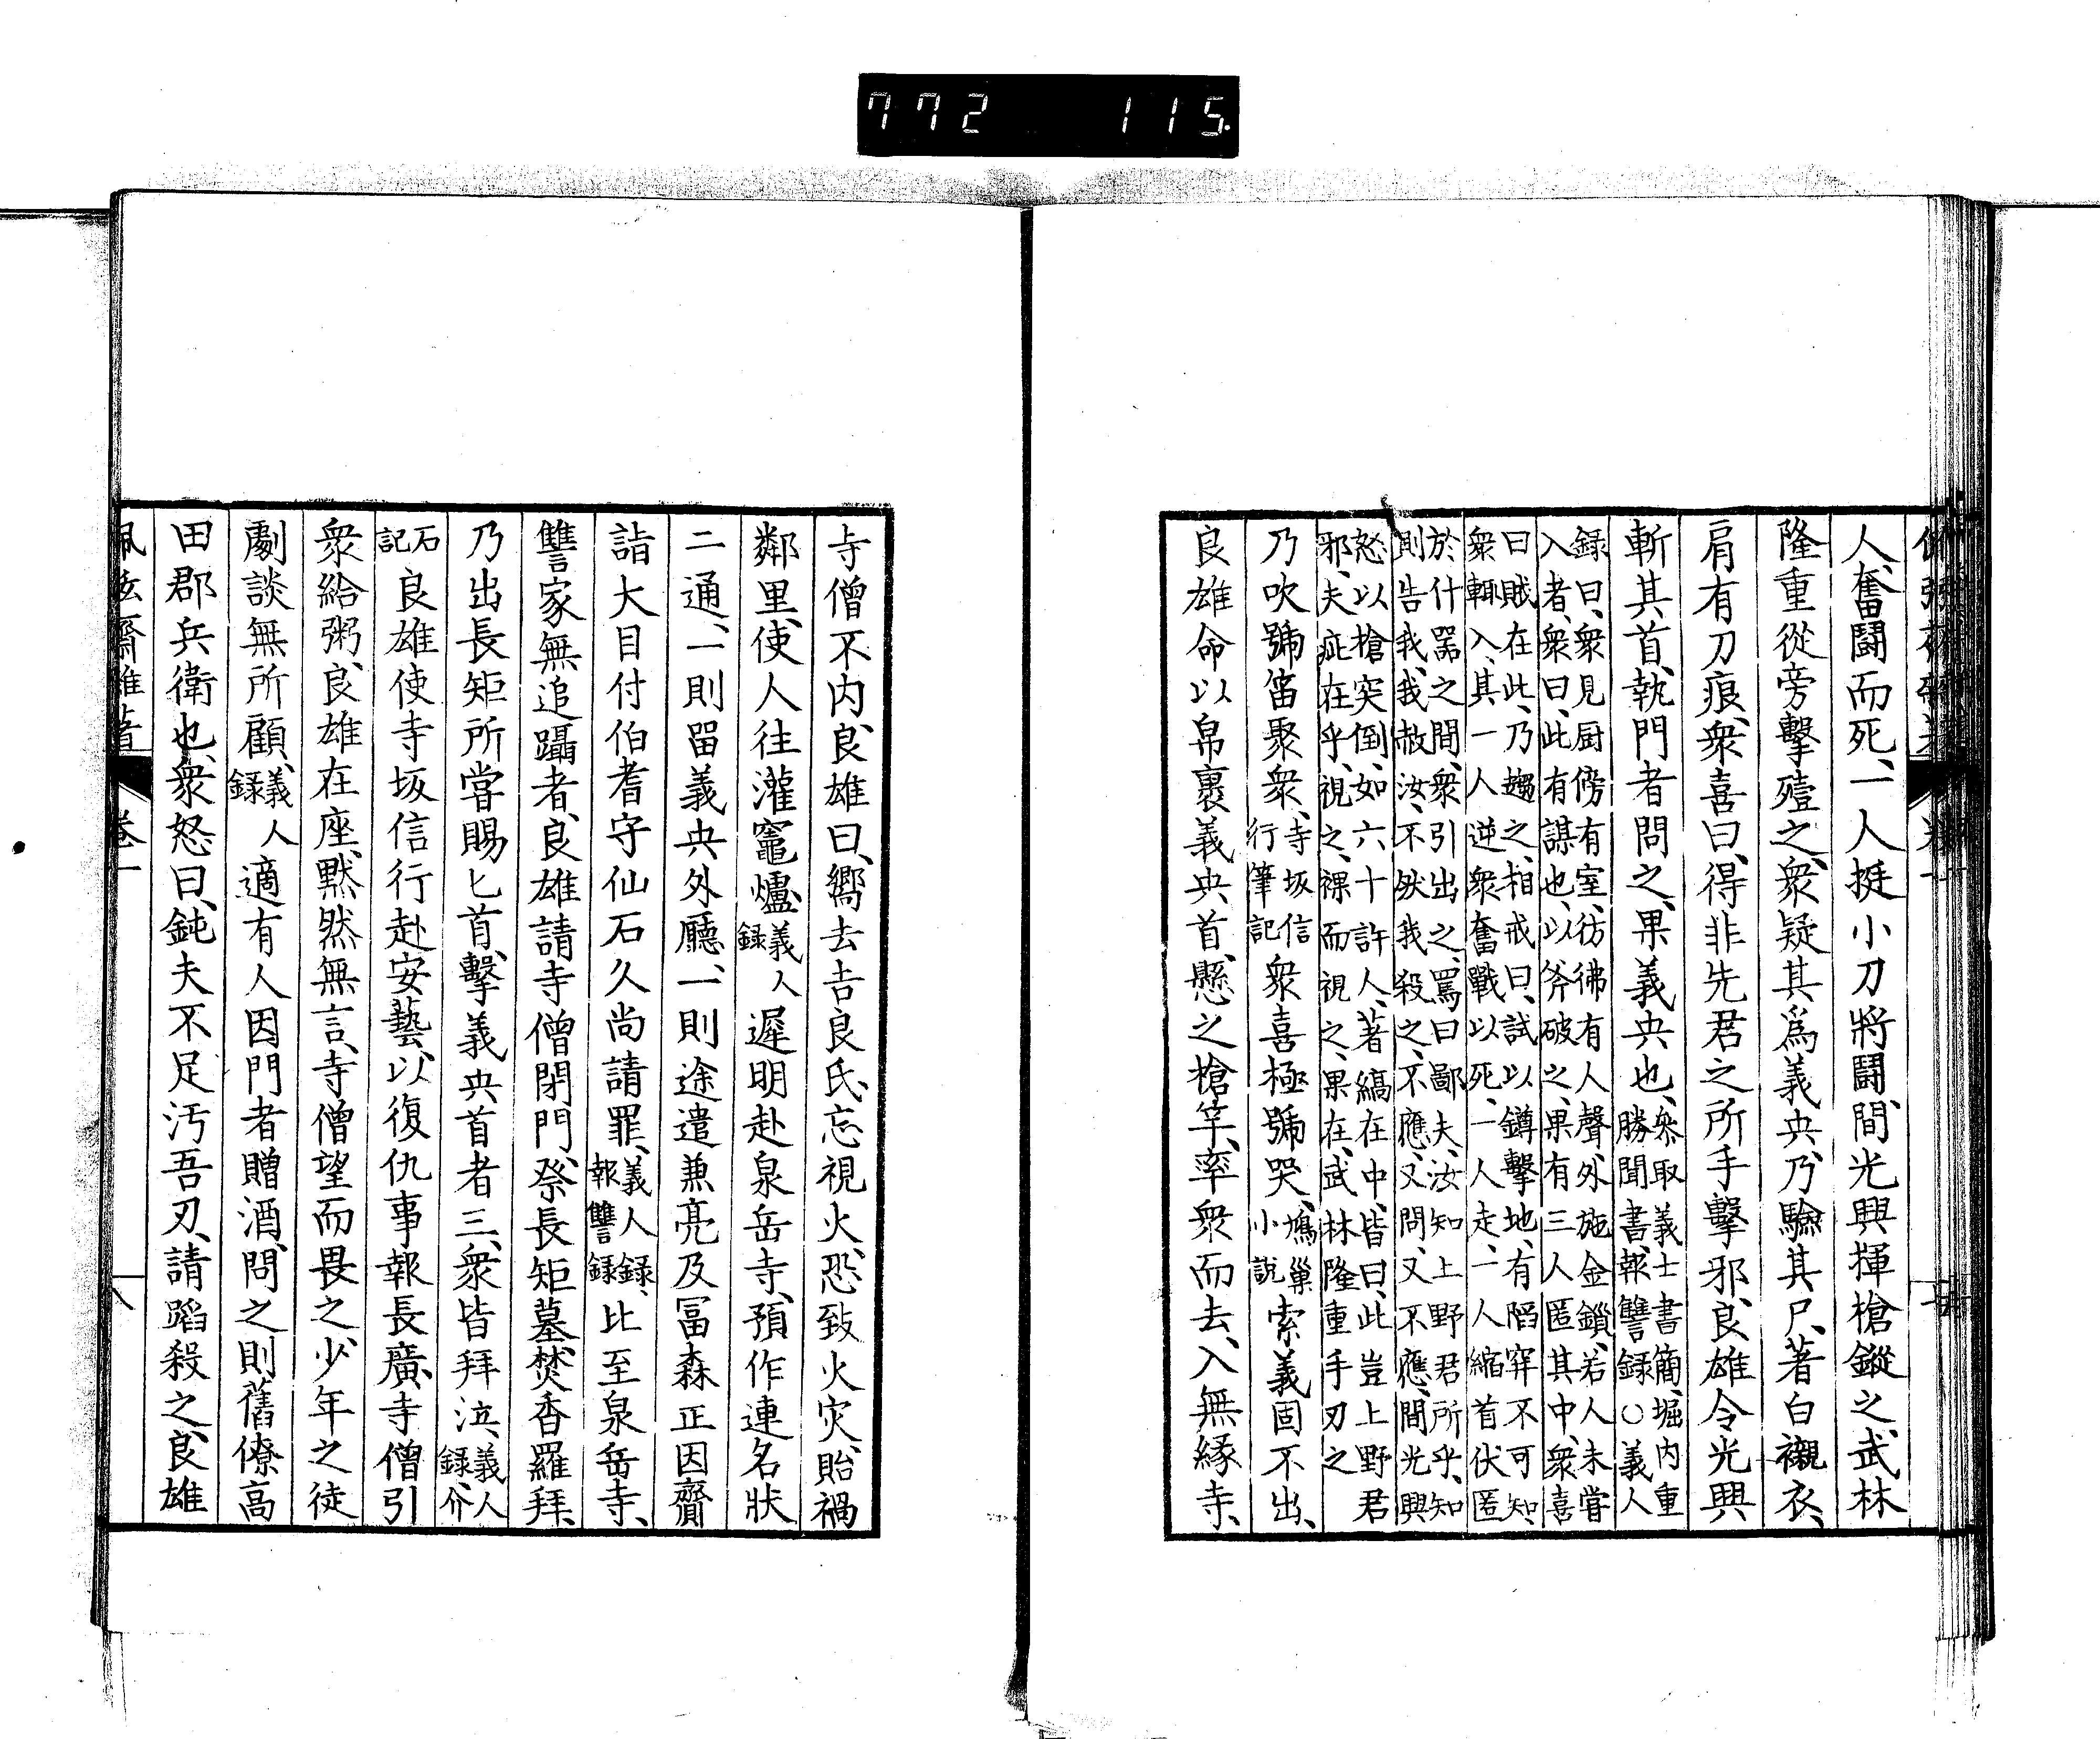 人、奮鬪而死、一人挺小刀將鬪、間光興揮槍鏦之、武林
隆重從旁擊殪之、衆疑其爲義央、乃驗其尸、著白襯衣、
肩有刀痕、衆喜曰、得非先君之所手擊邪、良雄令光興
斬其首、執門者問之、果義央也、叅取義士書簡、堀内重
勝聞書、報讐録〇義人
録曰、衆見厨傍有室、彷彿有人聲、外施金鎖、若人未嘗
入者、衆曰、此有謀也、以斧破之、果有三人匿其中、衆喜
曰賊在此、乃趨之、相戒曰、試以鐏擊地、有陷穽不可知、
衆輙入、其一人逆衆奮戰以死、一人走、一人縮首伏匿
於什器之間、衆引出之、罵曰鄙夫、汝知上野君所乎、知
則告我、我赦汝、不然我殺之、不應、又問、又不應、間光興
怒以槍突倒、如六十許人、著縞在中、皆曰、此豈上野君
邪、夫疵在乎、視之、裸而視之、果在、武林隆重手刃之
乃吹號笛聚衆、寺坂信
行筆記衆喜極號哭、鳩巢
小說索義固不出、
良雄命以帛裹義央首、懸之槍竿、率衆而去、入無緣寺、
寺僧不内、良雄曰、嚮去吉良氏、忘視火、恐致火灾、貽禍
鄰里、使人往灌竈爐、義人
録遲明赴泉岳寺、預作連名狀
二通、一則留義央外廳、一則途遣兼亮及冨森正因齎
詣大目付伯耆守仙石久尚請罪、義人録、
報讐録比至泉岳寺、
讐家無追躡者、良雄請寺僧閉門、祭長矩墓、焚香羅拜、
乃出長矩所嘗賜匕首、擊義央首者三、衆皆拜泣、義人
録、介
石
記良雄使寺坂信行赴安藝、以復仇事報長廣、寺僧引
衆給粥、良雄在座、黙然無言、寺僧望而畏之、少年之徒
劇談無所顧、義人
録適有人因門者贈酒、問之則舊僚高
田郡兵衛也、衆怒曰、鈍夫不足汚吾刃、請蹈殺之、良雄
卷一
八
772 115